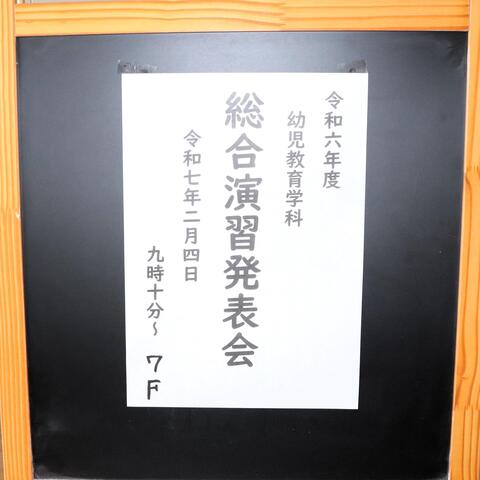 令和六年度
幼児教育学科
総合演習発表会
令和七年二月四日
九時十分～ 7F